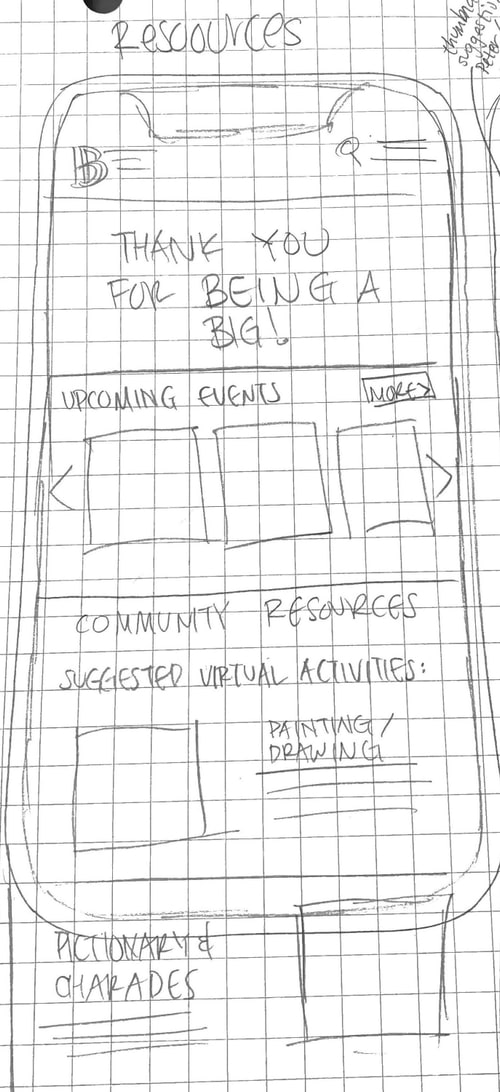 Resources
thumbnail
suggesti
Peter,
B
THANK YOU
FOR BEING A
BIG!
UPCOMING EVENTS
MORE>
<
>
COMMUNITY RESOURCES
SUGGESTED VIRTUAL ACTIVITIES:
PAINTING/
DRAWING
PICTIONARY &
CHARADES